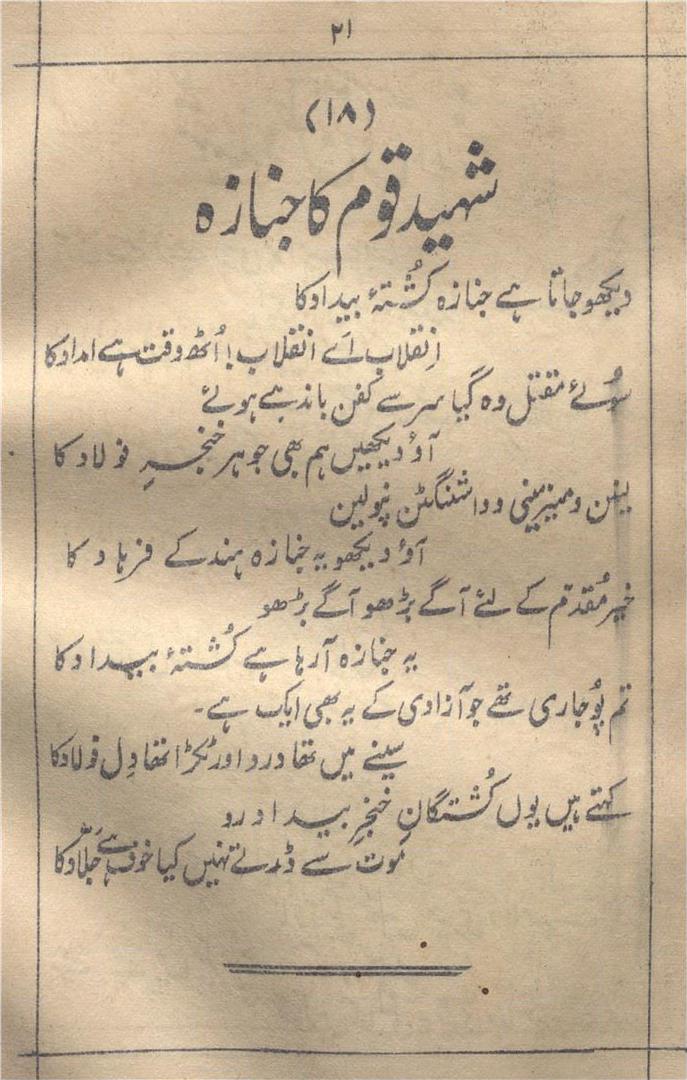 ۲۱
(۱۸)
شہید قوم کا جنازہ
دیکھو جاتا ہے جنازہ کُشتۂ بیداد کا
اِنقلاب اَے انقلاب! اُٹھ وقت ہے امداد کا
سُوئے مقتل وہ گیا سر سے کفن باندہے ہوئے
آؤ دیکھیں ہم بھی جوہر خنجرِ فولاد کا
لینن و میزینی و واشنگٹن نپولین
آؤ دیکھو یہ جنازہ ہند کے فرہاد کا
خیر مُقدم کے لئے آگے بڑھو آگے بڑھو
یہ جنازہ آرہا ہے کُشتۂ بیداد کا
تم پُوجاری تھے جو آزادی کے یہ بھی ایک ہے۔
سینے میں تھا درد اور ٹکڑا تھا دِل فولاد کا
کہتے ہیں یوں کُشتگانِ خنجرِ بیداد رو
موت سے ڈرتے نہیں کیا خوف ہے جلّاد کا